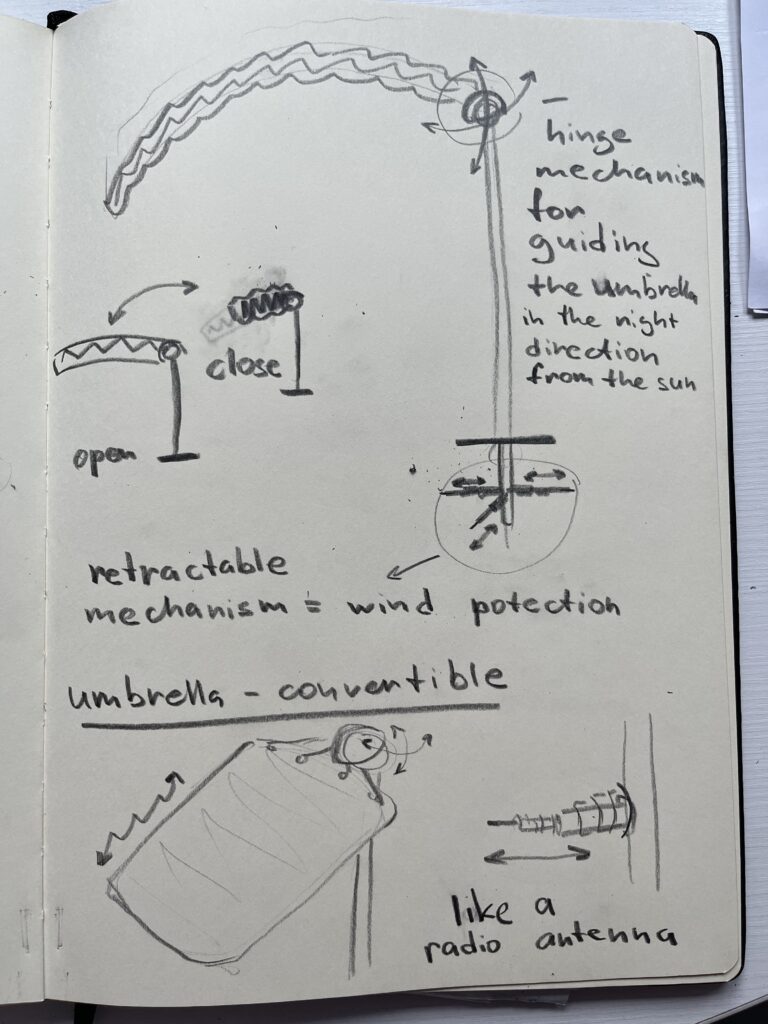 hinge
mechanism
for
guiding
the umbrella
in the right
direction
from the sun
close
open
retractable
mechanism = wind potection
umbrella - convertible
like a
radio antenna